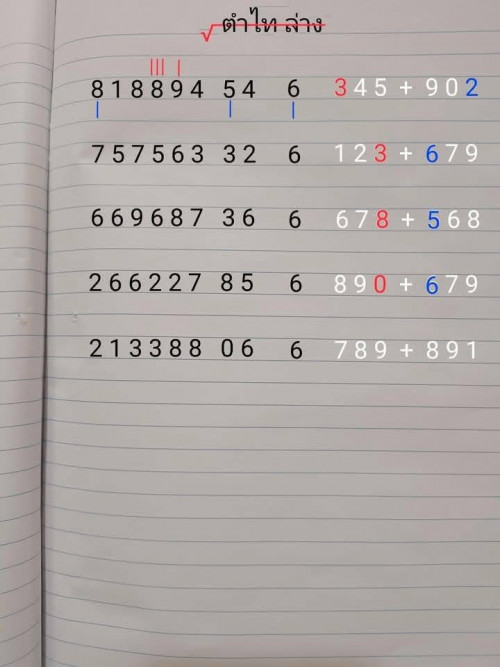 ตำไท ล่าง
818894 54 6 345 + 902
757563 32 6 123 + 679
669687 36 6 678 + 568
266227 85 6 890 + 679
213388 06 6 789 + 891